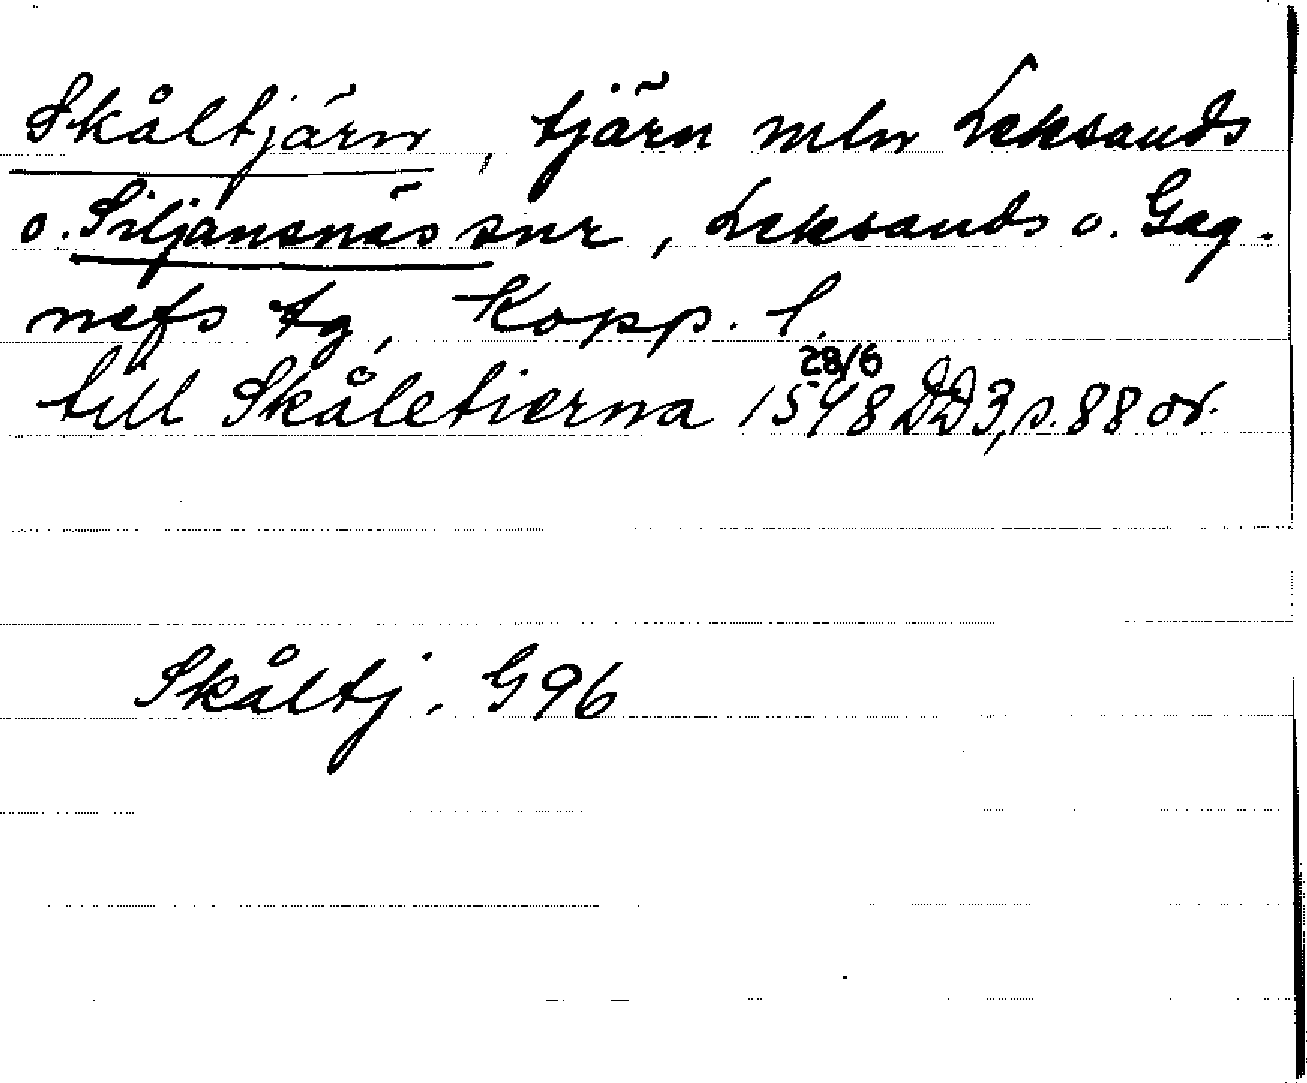 Skåltjärn, tjärn mln Leksands
o. Siljansnäs snr, Leksands o. Gag-
nefs tg, Kopp. l.
till Skåletierna 28/6 1548 DD3, s. 88 or.
Skåltj. G96